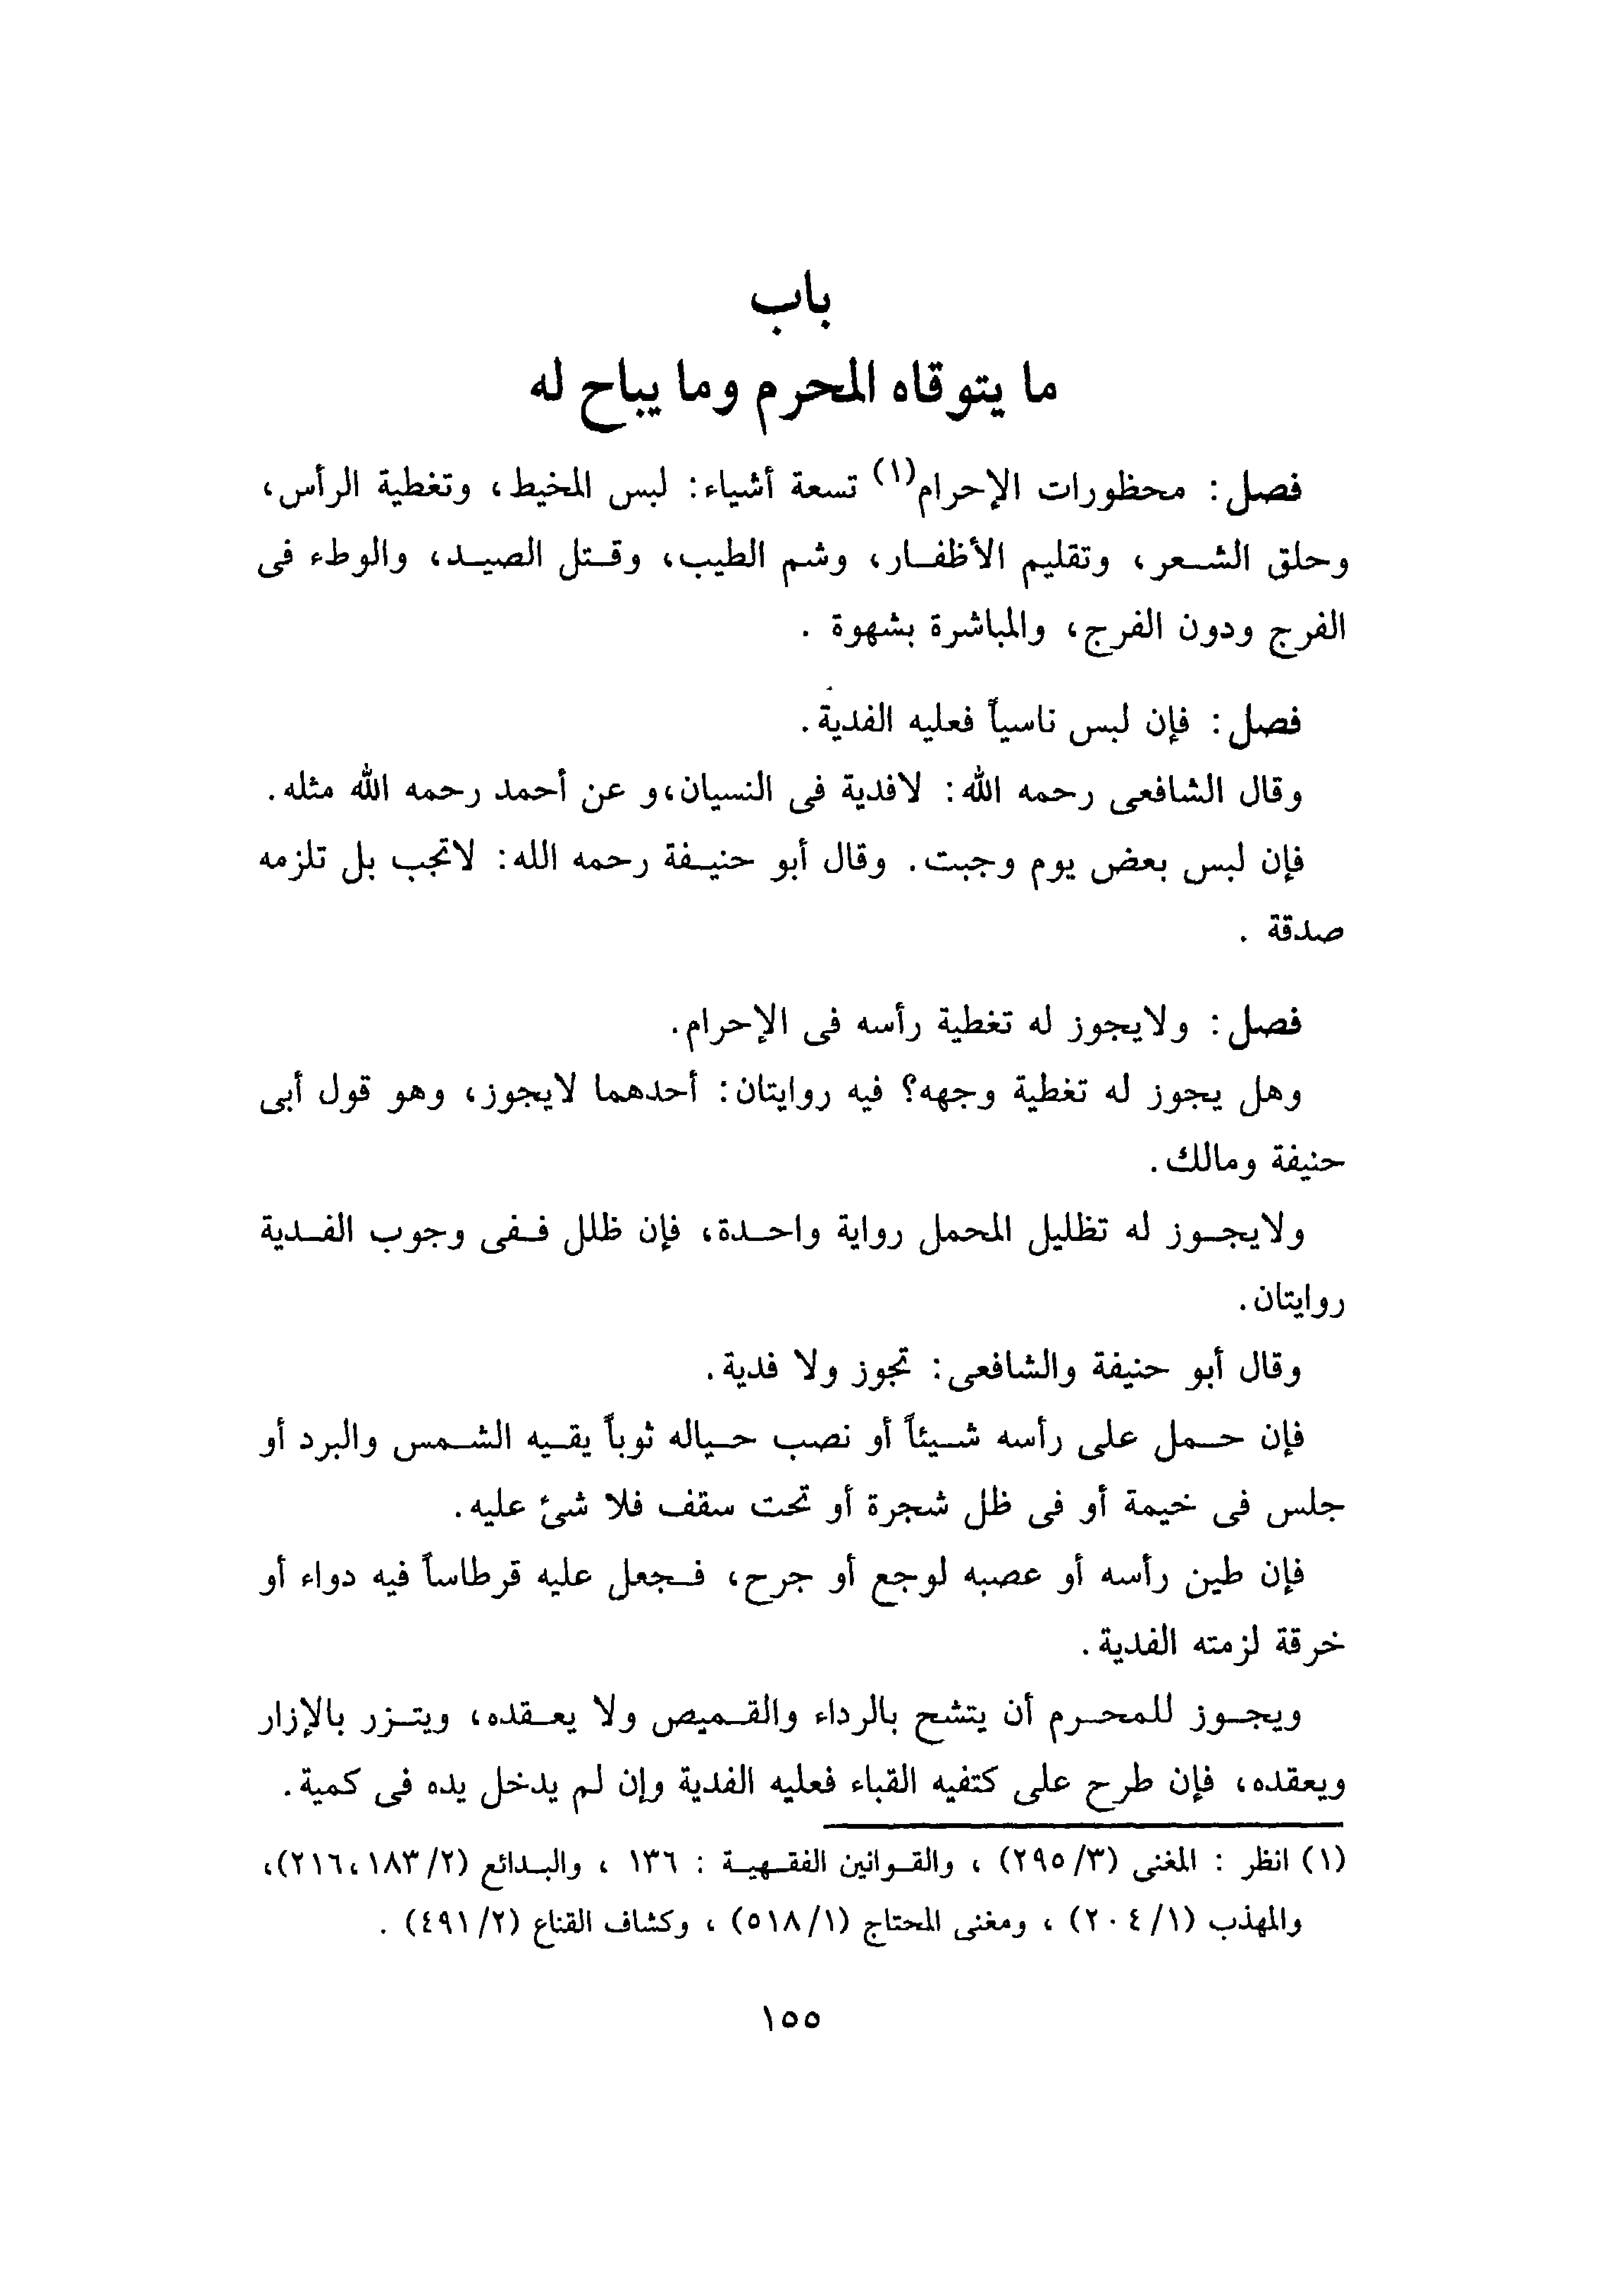 باب
ما يتوقاه المحرم وما يباح له
فصل: محظورات الإحرام(١) تسعة أشياء: لبس المخيط، وتغطية الرأس،
وحلق الشعر، وتقليم الأظفار، وشم الطيب، وقتل الصيد، والوطء فى
الفرج ودون الفرج، والمباشرة بشهوة .
فصل: فإن لبس ناسياً فعليه الفدية.
وقال الشافعى رحمه الله: لافدية فى النسيان،و عن أحمد رحمه الله مثله.
فإن لبس بعض يوم وجبت. وقال أبو حنيفة رحمه الله: لاتجب بل تلزمه
صدقة .
فصل: ولايجوز له تغطية رأسه فى الإحرام.
وهل يجوز له تغطية وجهه؟ فيه روايتان: أحدهما لايجوز، وهو قول أبى
حنيفة ومالك.
ولايجوز له تظليل المحمل رواية واحدة، فإن ظلل ففى وجوب الفدية
روايتان.
وقال أبو حنيفة والشافعى: تجوز ولا فدية.
فإن حمل على رأسه شيئاً أو نصب حياله ثوباً يقيه الشمس والبرد أو
جلس فى خيمة أو فى ظل شجرة أو تحت سقف فلا شئ عليه.
فإن طين رأسه أو عصبه لوجع أو جرح، فجعل عليه قرطاساً فيه دواء أو
خرقة لزمته الفدية.
ويجوز للمحرم أن يتشح بالرداء والقميص ولا يعقده، ويتزر بالإزار
ويعقده، فإن طرح على كتفيه القباء فعليه الفدية وإن لم يدخل يده فى كمية.
(١) انظر : المغنى (٣/ ٢٩٥) ، والقوانين الفقهية : ١٣٦ ، والبدائع (٢/ ١٨٣،٢١٦)،
والمهذب (١/ ٢٠٤) ، ومغنى المحتاج (١/ ٥١٨) ، وكشاف القناع (٢/ ٤٩١) .
١٥٥